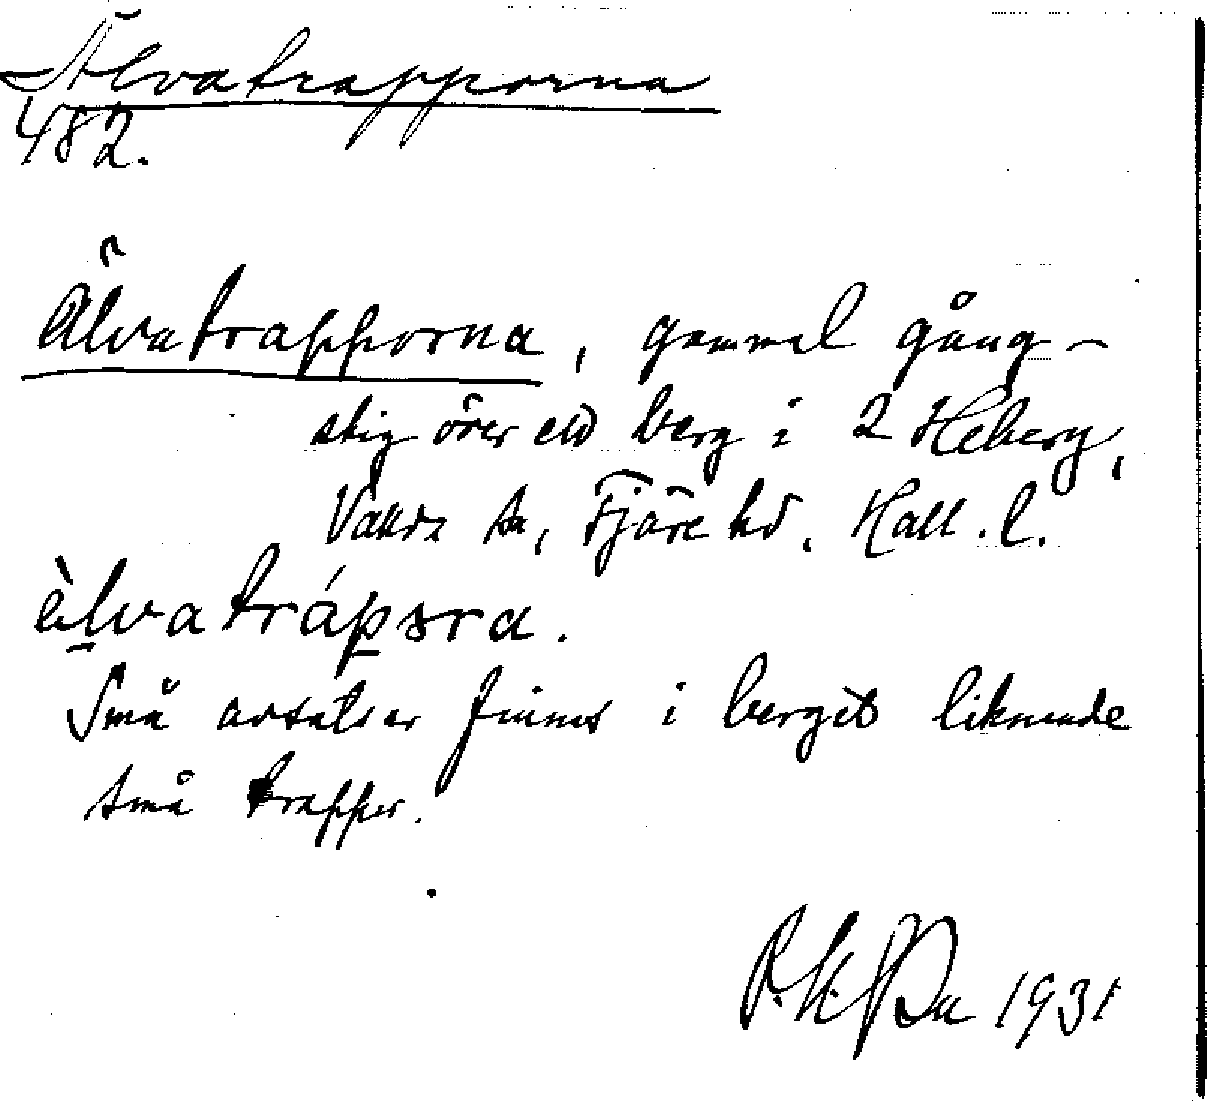 Älvatrapporna
482.
Älvatrapporna, gammal gång-
stig över ett berg i 2 Heberg,
sn, Fjäre hd. Hall. l.
älvatrápɔra.
Små avsatser finnes i berget liknande
små trapper.
1931